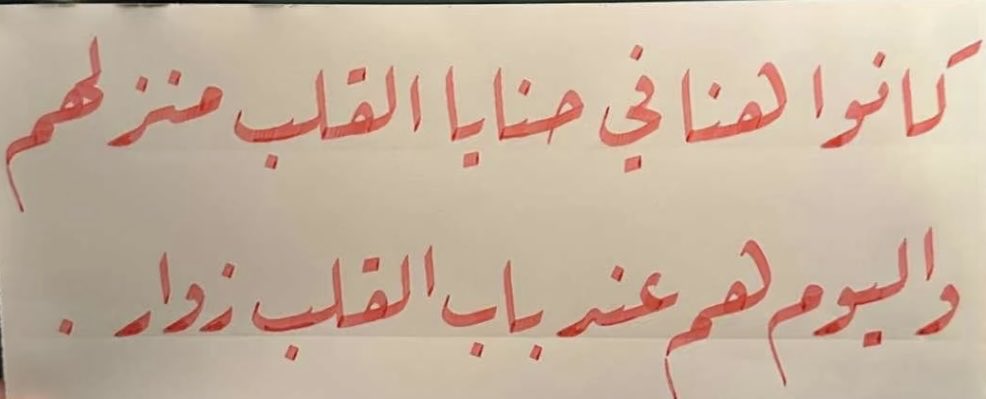 كانوا هنا في حنايا القلب منزلهم
واليوم هم عند باب القلب زوار .